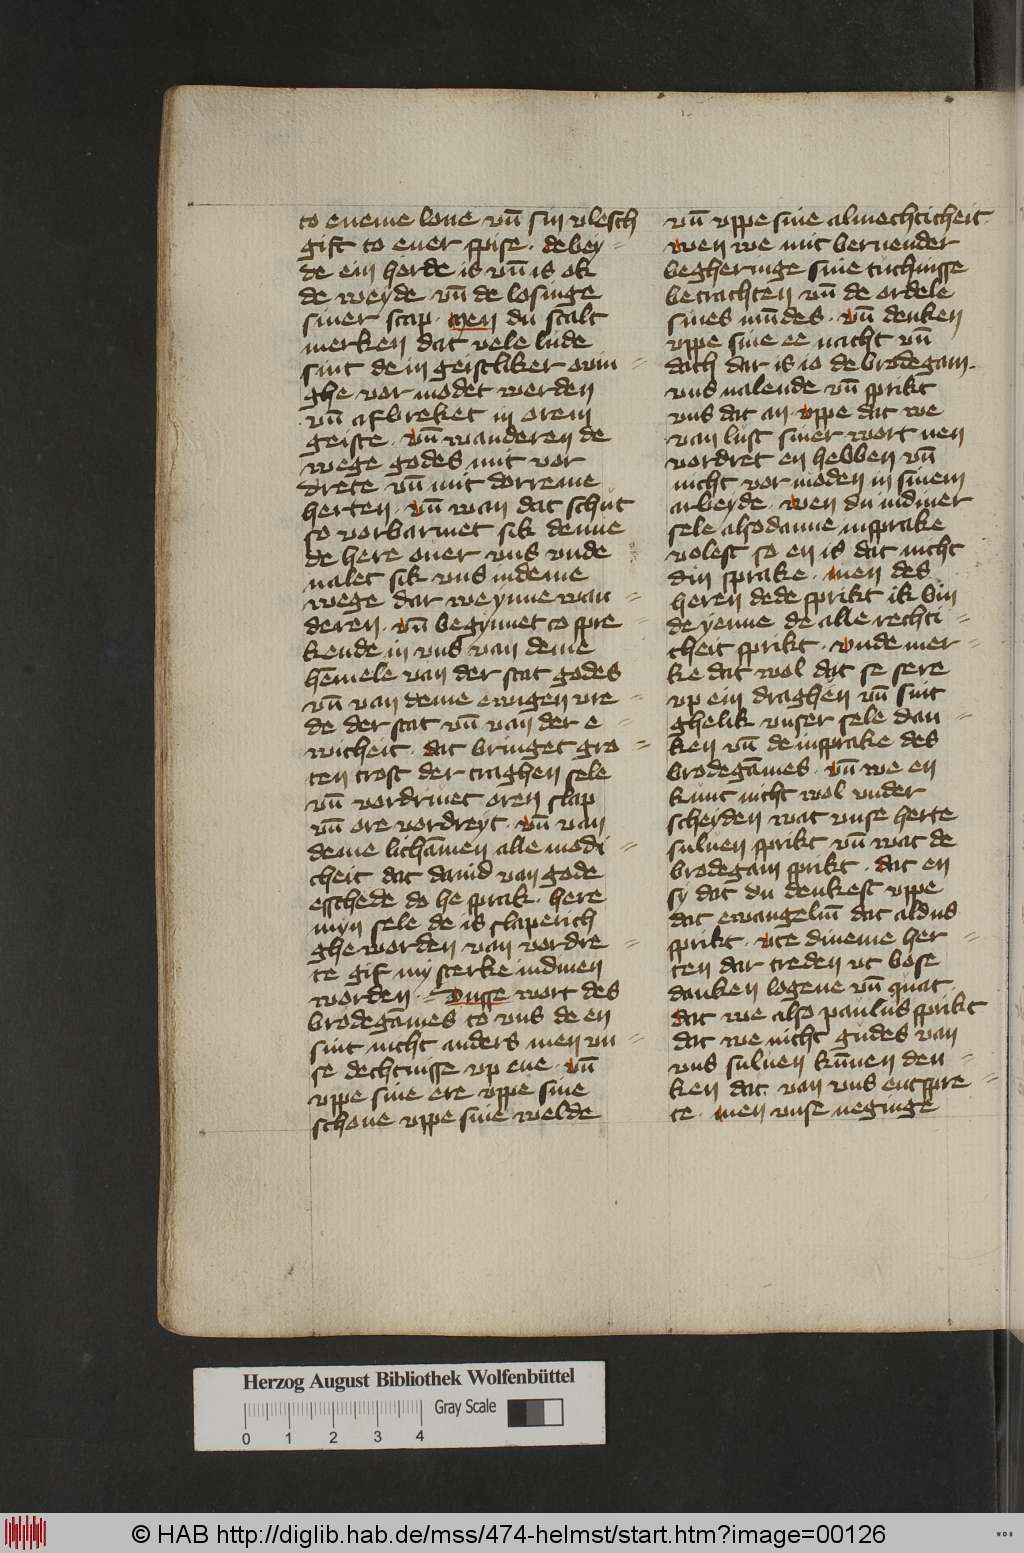 to eneme lone vn̄ sin vlesch
gift to ener spise · de bey⸗
de ein herde is vn̄ is ok
de weyde vn̄ de losinge
siner scap · Men du scalt
merken dat vele lude
sint de in geistliker ouin⸗
ghe vor modet werden
vn̄ afbreket in orem
geiste · vn̄ wanderen de
wege godes mit vor
drete vn̄ mit dorreme
herten · vn̄ wan dat schut
so vorbarmet sik denne
de here ouer vns vnde
nalet sik vns indeme
wege dar we ynne wan⸗
deren · vn̄ begynnet to spre⸗
kende in vns van deme
hēmele van der stat godes
vn̄ van deme ewigen vre⸗
de der stat vn̄ van der e⸗
wicheit · dat bringet gro⸗
ten trost der traghen sele
vn̄ vordriuet oren slap
vn̄ ore vordreyt · vn̄ van
deme lichāmen alle modi⸗
cheit dat dauid van gode
esschede do he sprak · here
myn sele de is slaperich
ghe worden van vordre⸗
te gif my sterke indinen
worden · Dusse wort des
brodegāmes to vns de en
sint nicht anders men vn⸗
se dechtnisse vp ene · vn̄
vppe sine ere vppe sine
schone vppe sine welde
vn̄ vppe sine almechticheit
wen we mit bernender
begheringe sine tuchnisse
betrachten vn̄ de ordele
sines mūdes · vn̄ denken
vppe sine ee nacht vn̄
dach dar is io de brodegam
vns nalende vn̄ sprikt
vns dat an vppe dat we
van lust siner wort nen
vordret en hebben vn̄
nicht vor moden in sinem
arbeyde · wen du indiner
sele alsodanne insprake
volest so en is dat nicht
din sprake · men des
heren dede sprikt ik bin
de yenne de alle rechti⸗
cheit sprikt · vnde mer⸗
ke dat wol dat se sere
vp ein draghen vn̄ sint
ghelik vnser sele dan⸗
ken vn̄ de insprake des
brodegāmes · vn̄ we en
kunt nicht wol vnder
scheyden wat vnse herte
suluen sprikt vn̄ wat de
brodegam sprikt · dat en
sy dat du denkest vppe
dat ewangeliū dat aldus
sprikt · vte dineme her⸗
ten dar treden vt bose
danken logene vn̄ quat
dat we also paulus sprikt
dat we nicht gudes van
vns suluen kūnen den⸗
ken dat van vns entspre⸗
te · men vnse neginge
Herzog August Bibliothek Wolfenbüttel
Gray Scale
0 1 2 3 4
© HAB http://diglib.hab.de/mss/474-helmst/start.htm?image=00126